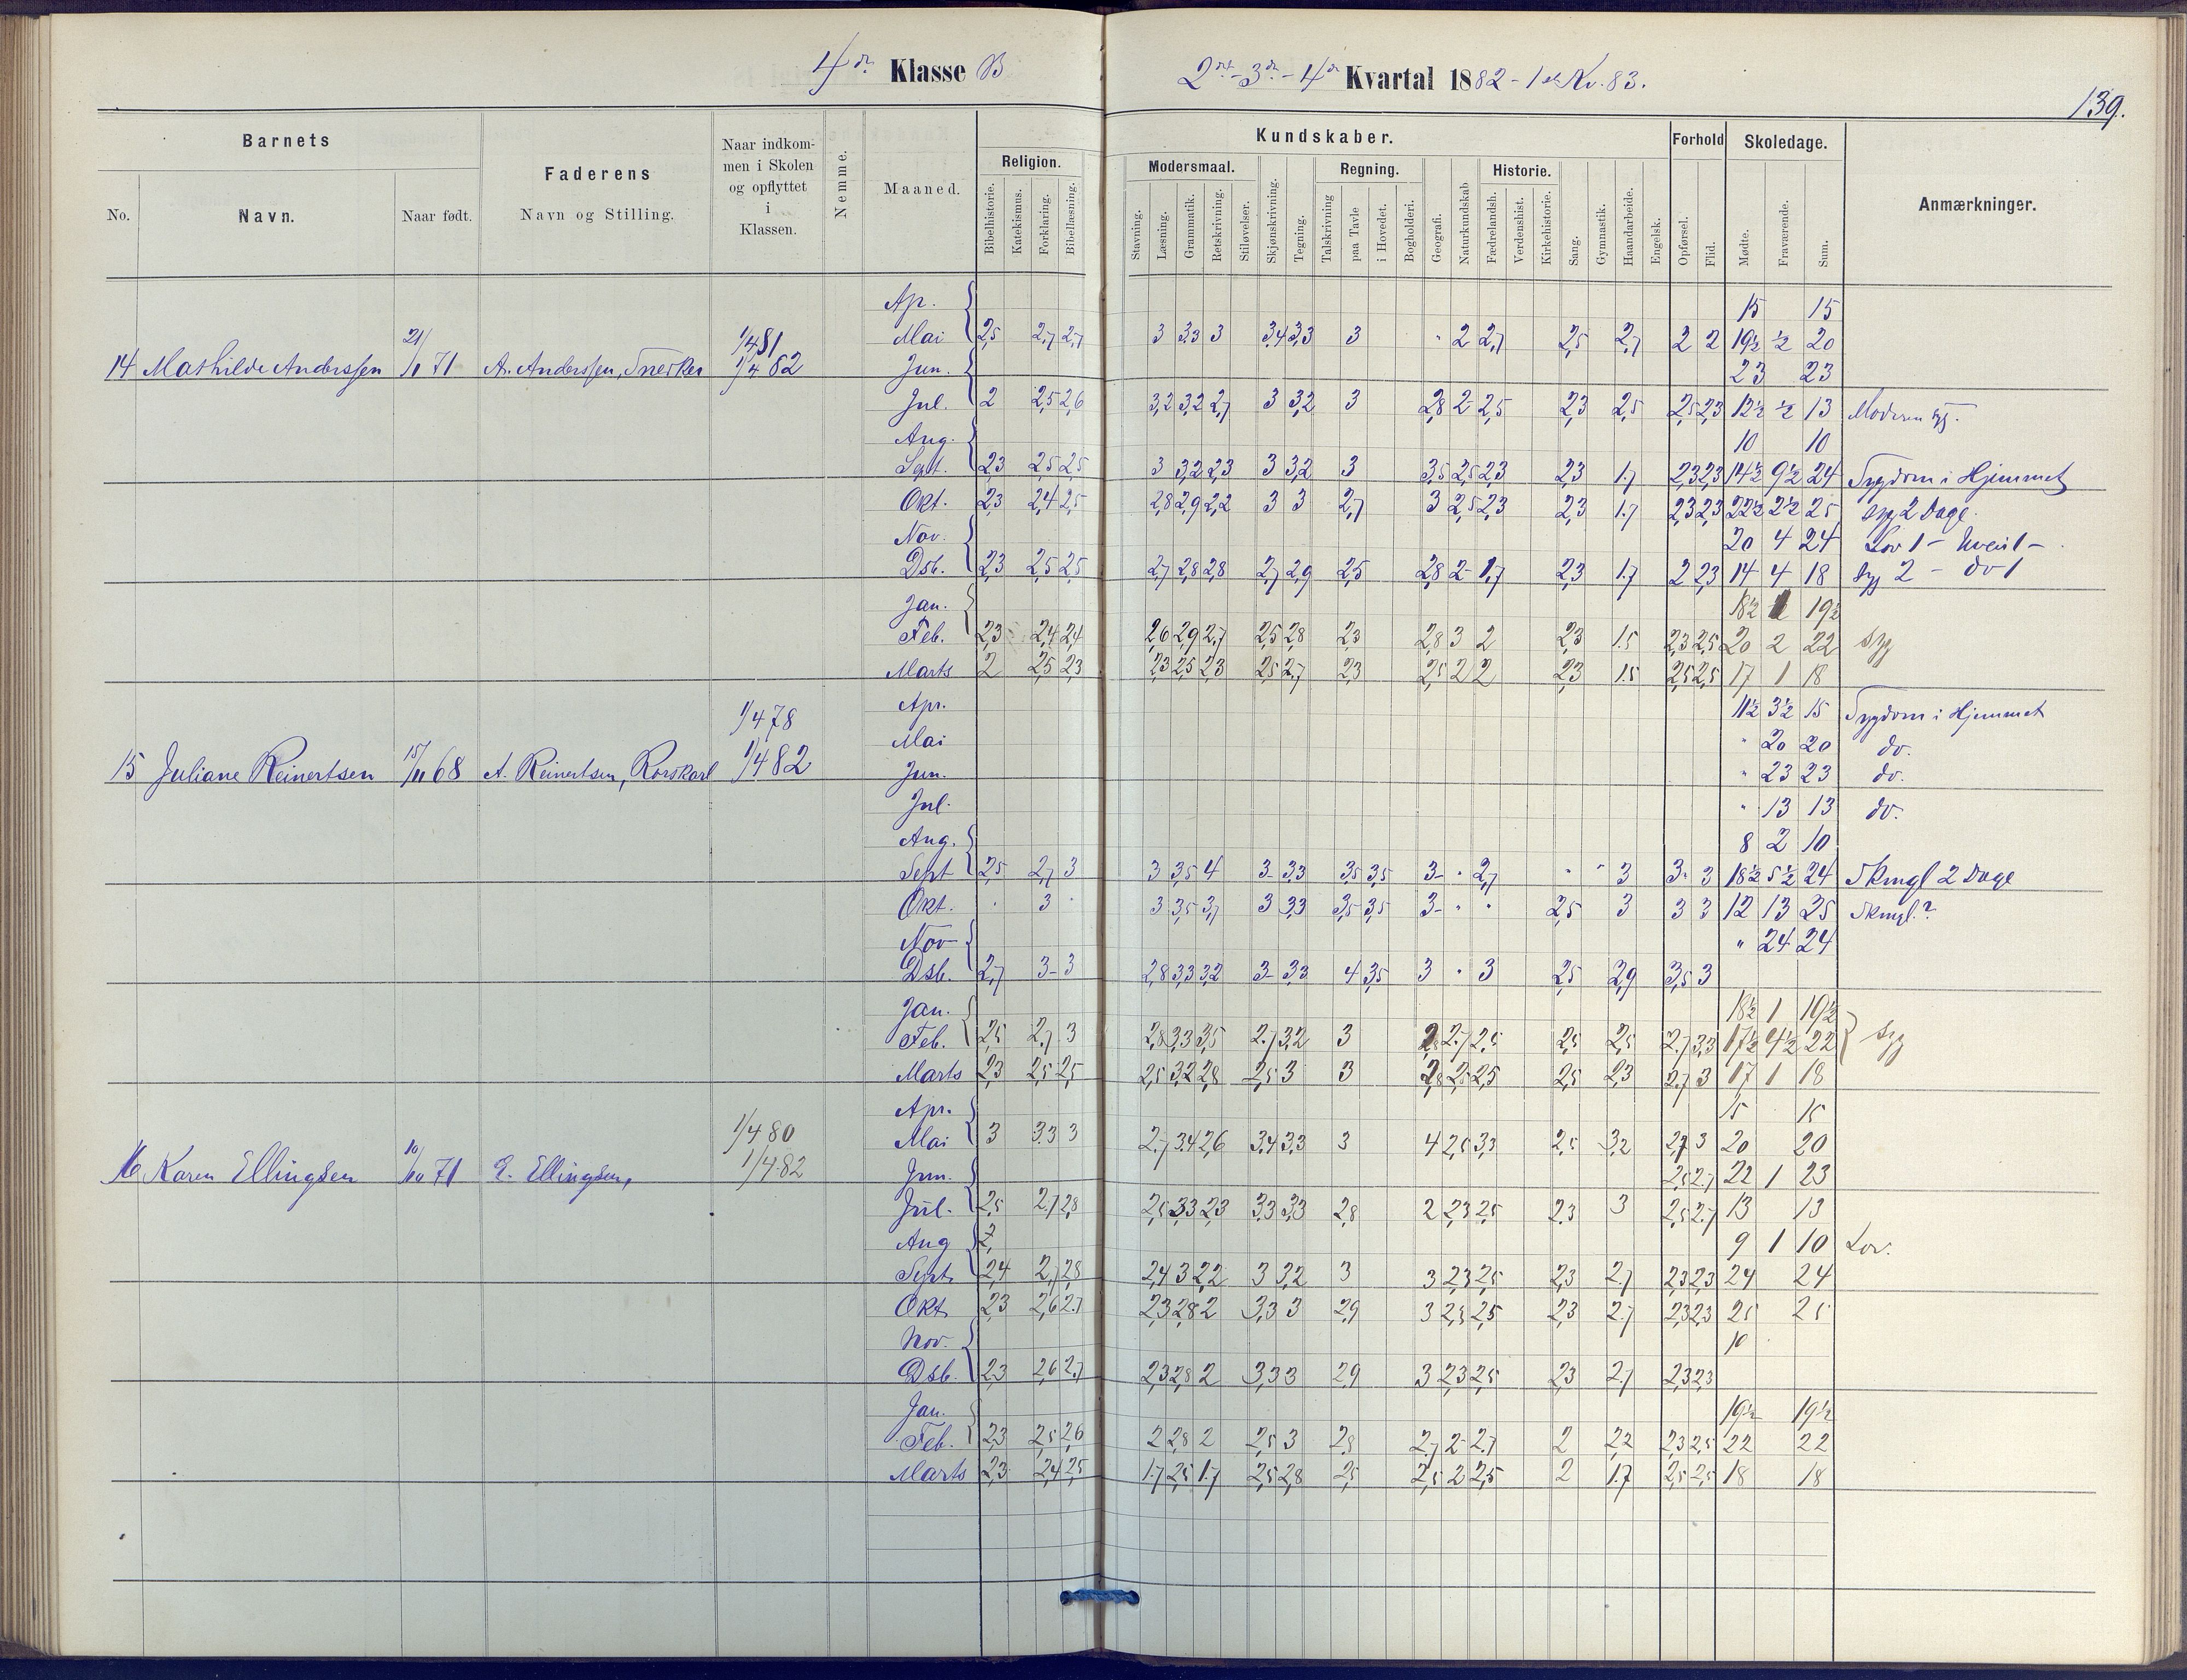 4de Klasse B
2det - 3de - 4de Kvartal 1882 - 1ste Kv. 83.
139.
Barnets
No.
Navn.
Naar født.
Faderens
Navn og Stilling.
Naar indkom-
men i Skolen
og opflyttet
i
Klassen.
Nemme.
Maaned.
Kundskaber.
Religion.
Bibelhistorie.
Katekismus.
Forklaring.
Bibellæsning.
Modersmaal.
Stavning.
Læsning.
Grammatik.
Retskrivning.
Stiløvelser.
Skjønskrivning.
Tegning.
Regning.
Talskrivning
paa Tavle
i Hovedet.
Bogholderi.
Geografi.
Naturkundskab
Historie.
Fædrelandsh.
Verdenshist.
Kirkehistorie.
Sang.
Gymnastik.
Haandarbeide.
Engelsk.
Forhold
Opførsel.
Flid.
Skoledage.
Mødte.
Fraværende.
Sum.
Anmærkninger.
14 Mathilde Anderssen 21/11 71 A. Anderssen, Snerker 1/4 81 1/4 82
Apr. 15 15
Mai 2,5 2,7 2,7 3 3,3 3 3,4 3,3 3 " 2 2,7 2,5 2,7 2 2 19½ ½ 20
Jun. 23 23
Jul. 2 2,5 2,6 3,2 3,2 2,7 3 3,2 3 2,8 2- 2,5 2,3 2,5 2,5 2,3 12½ ½ 13 Moderen syg.
Aug. 10 10
Sept. 2,3 2,5 2,5 3 3,2 2,3 3 3,2 3 3,5 2,5 2,3 2,3 1.7 2,3 2,3 14½ 9½ 24 Sygdom i Hjemmet
Okt. 2,3 2,4 2,5 2,8 2,9 2,2 3 3 2,7 3 2,5 2,3 2,3 1.7 2,3 2,3 22½ 2½ 25 syg 2 Dage.
Nov. 20 4 24 Lov 1 -
Dsb. 2,3 2,5 2,5 2,7 2,8 2,8 2,7 2,9 2,5 2,8 2- 1,7 2,3 1.7 2 2,3 14 4 18 syg 2 - do 1
Jan. 18½ 1 19½
Feb. 2,3 2,4 2,4 2,6 2,9 2,7 2,5 2,8 2,3 2,8 3 2 2,3 1.5 2,3 2,5 20 2 22 syg
Marts 2 2,5 2,3 2,3 2,5 2,3 2,5 2,7 2,3 2,5 2 2 2,3 1.5 2,5 2,5 17 1 18
15 Juliane Reinertsen 15/11 68 A. Reinertsen, Rorskarl 1/4 78 1/4 82
Apr. 11½ 3½ 15 Sygdom i Hjemmet
Mai " 20 20 do.
Jun. " 23 23 do.
Jul. " 13 13 do.
Aug. 8 2 10
Sept 2,5 2,7 3 3 3,5 4 3- 3,3 3,5 3,5 3- " 2,7 " " 3 3- 3 18½ 5½ 24 Skmgl 2 Dage
Okt. " 3 " 3 3,5 3,7 3 3,3 3,5 3,5 3- " " 2,5 3 3 3 12 13 25 Skmgl.?
Nov " 24 24
Dsb. 2,7 3- 3 2,8 3,3 3,2 3- 3,3 4 3,5 3 " 3 2,5 2,9 3,5 3
Jan. 18½ 1 19½
Feb. 2,5 2,7 3 2,8 3,3 3,5 2.7 3,2 3 2,8 2.7 2,5 2,5 2,5 2.7 3,3 17½ 4½ 22 syg
Marts 2,3 2,5 2,5 2,5 3,2 2,8 2,5 3 3 2,8 2,5 2,5 2,5 2,3 2.7 3 17 1 18
16 Karen Ellingsen 10/10 71 E. Ellingsen, 1/4 80 1/4 82
Apr. 15 15
Mai 3 3.3 3 2.7 3.4 2,6 3.4 3,3 3 4 2,5 3,3 2,5 3,2 2,7 3 20 20
Jun. 2,5 2.7 22 1 23
Jul. 2,5 2.7 2,8 2,5 3,3 2,3 3,3 3,3 2,8 2 2,3 2,5 2,3 3 2,5 2.7 13 13
Aug 2, 9 1 10 Lov.
Sept. 2,4 2,7 2,8 2,4 3 2,2 3 3,2 3 3 2,3 2,5 2,3 2.7 2,3 2,3 24 24
Okt. 2,3 2,6 2.7 2,3 2,8 2 3,3 3 2,9 3 2,3 2,5 2,3 2.7 2,3 2,3 25 25
Nov. 10
Dsb. 2,3 2,6 2.7 2,3 2,8 2 3,3 3 2,9 3 2,3 2,5 2,3 2.7 2,3 2,3
Jan. 19½ 19½
Feb. 2,3 2,5 2,6 2 2,8 2 2,5 3 2,8 2,7 2- 2.7 2 2,2 2,3 2,5 22 22
Marts 2,3 2,4 2,5 1.7 2,5 1.7 2,5 2,8 2,5 2,5 2 2,5 2 1.7 2,5 2,5 18 18